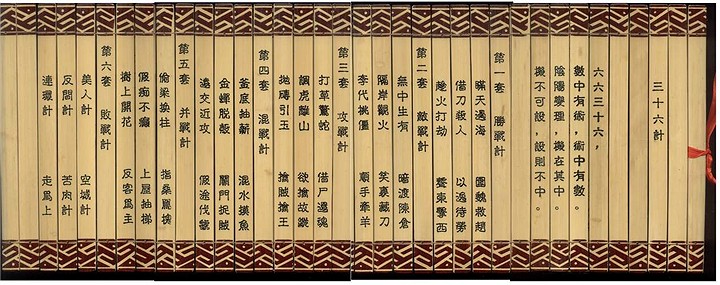 三十六計
六六三十六，
數中有術，術中有數。
陰陽燮理，機在其中。
機不可設，設則不中。
第一套 勝戰計
瞞天過海 圍魏救趙
借刀殺人 以逸待勞
趁火打劫 聲東擊西
第二套 敵戰計
無中生有 暗渡陳倉
隔岸觀火 笑裏藏刀
李代桃僵 順手牽羊
第三套 攻戰計
打草驚蛇 借尸還魂
調虎離山 欲擒故縱
拋磚引玉 擒賊擒王
第四套 混戰計
釜底抽薪 混水摸魚
金蟬脫殼 關門捉賊
遠交近攻 假途伐虢
第五套 并戰計
偷梁換柱 指桑罵槐
假痴不癲 上屋抽梯
樹上開花 反客爲主
第六套 敗戰計
美人計 空城計
反間計 苦肉計
連環計 走爲上